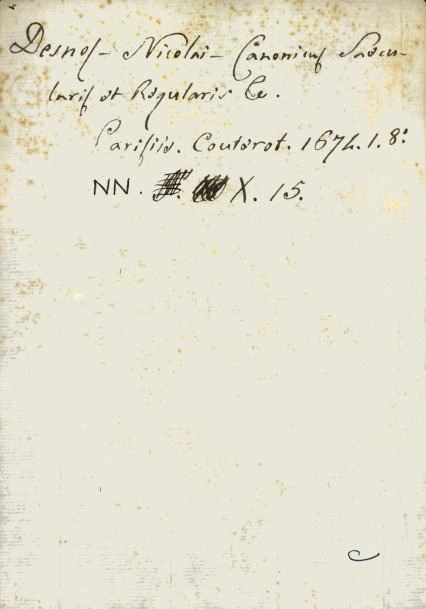 Desnos - Nicolai - Canonicus Saecu-
laris et Regularis &c.
Parisiis. Couterot. 1674. 1. 8º
NN. X. 15.